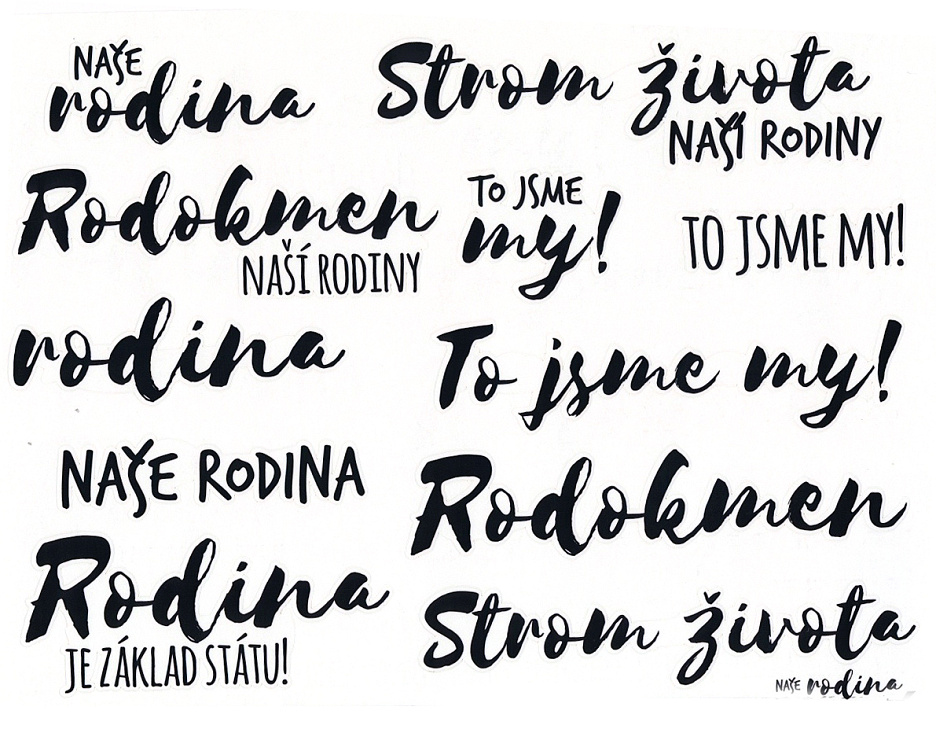 NAŠE
rodina
Strom života
NAŠÍ RODINY
Rodokmen
NAŠÍ RODINY
TO JSME
my!
TO JSME MY!
rodina
To jsme my!
NAŠE RODINA
Rodokmen
Rodina
JE ZÁKLAD STÁTU!
Strom života
NAŠE rodina